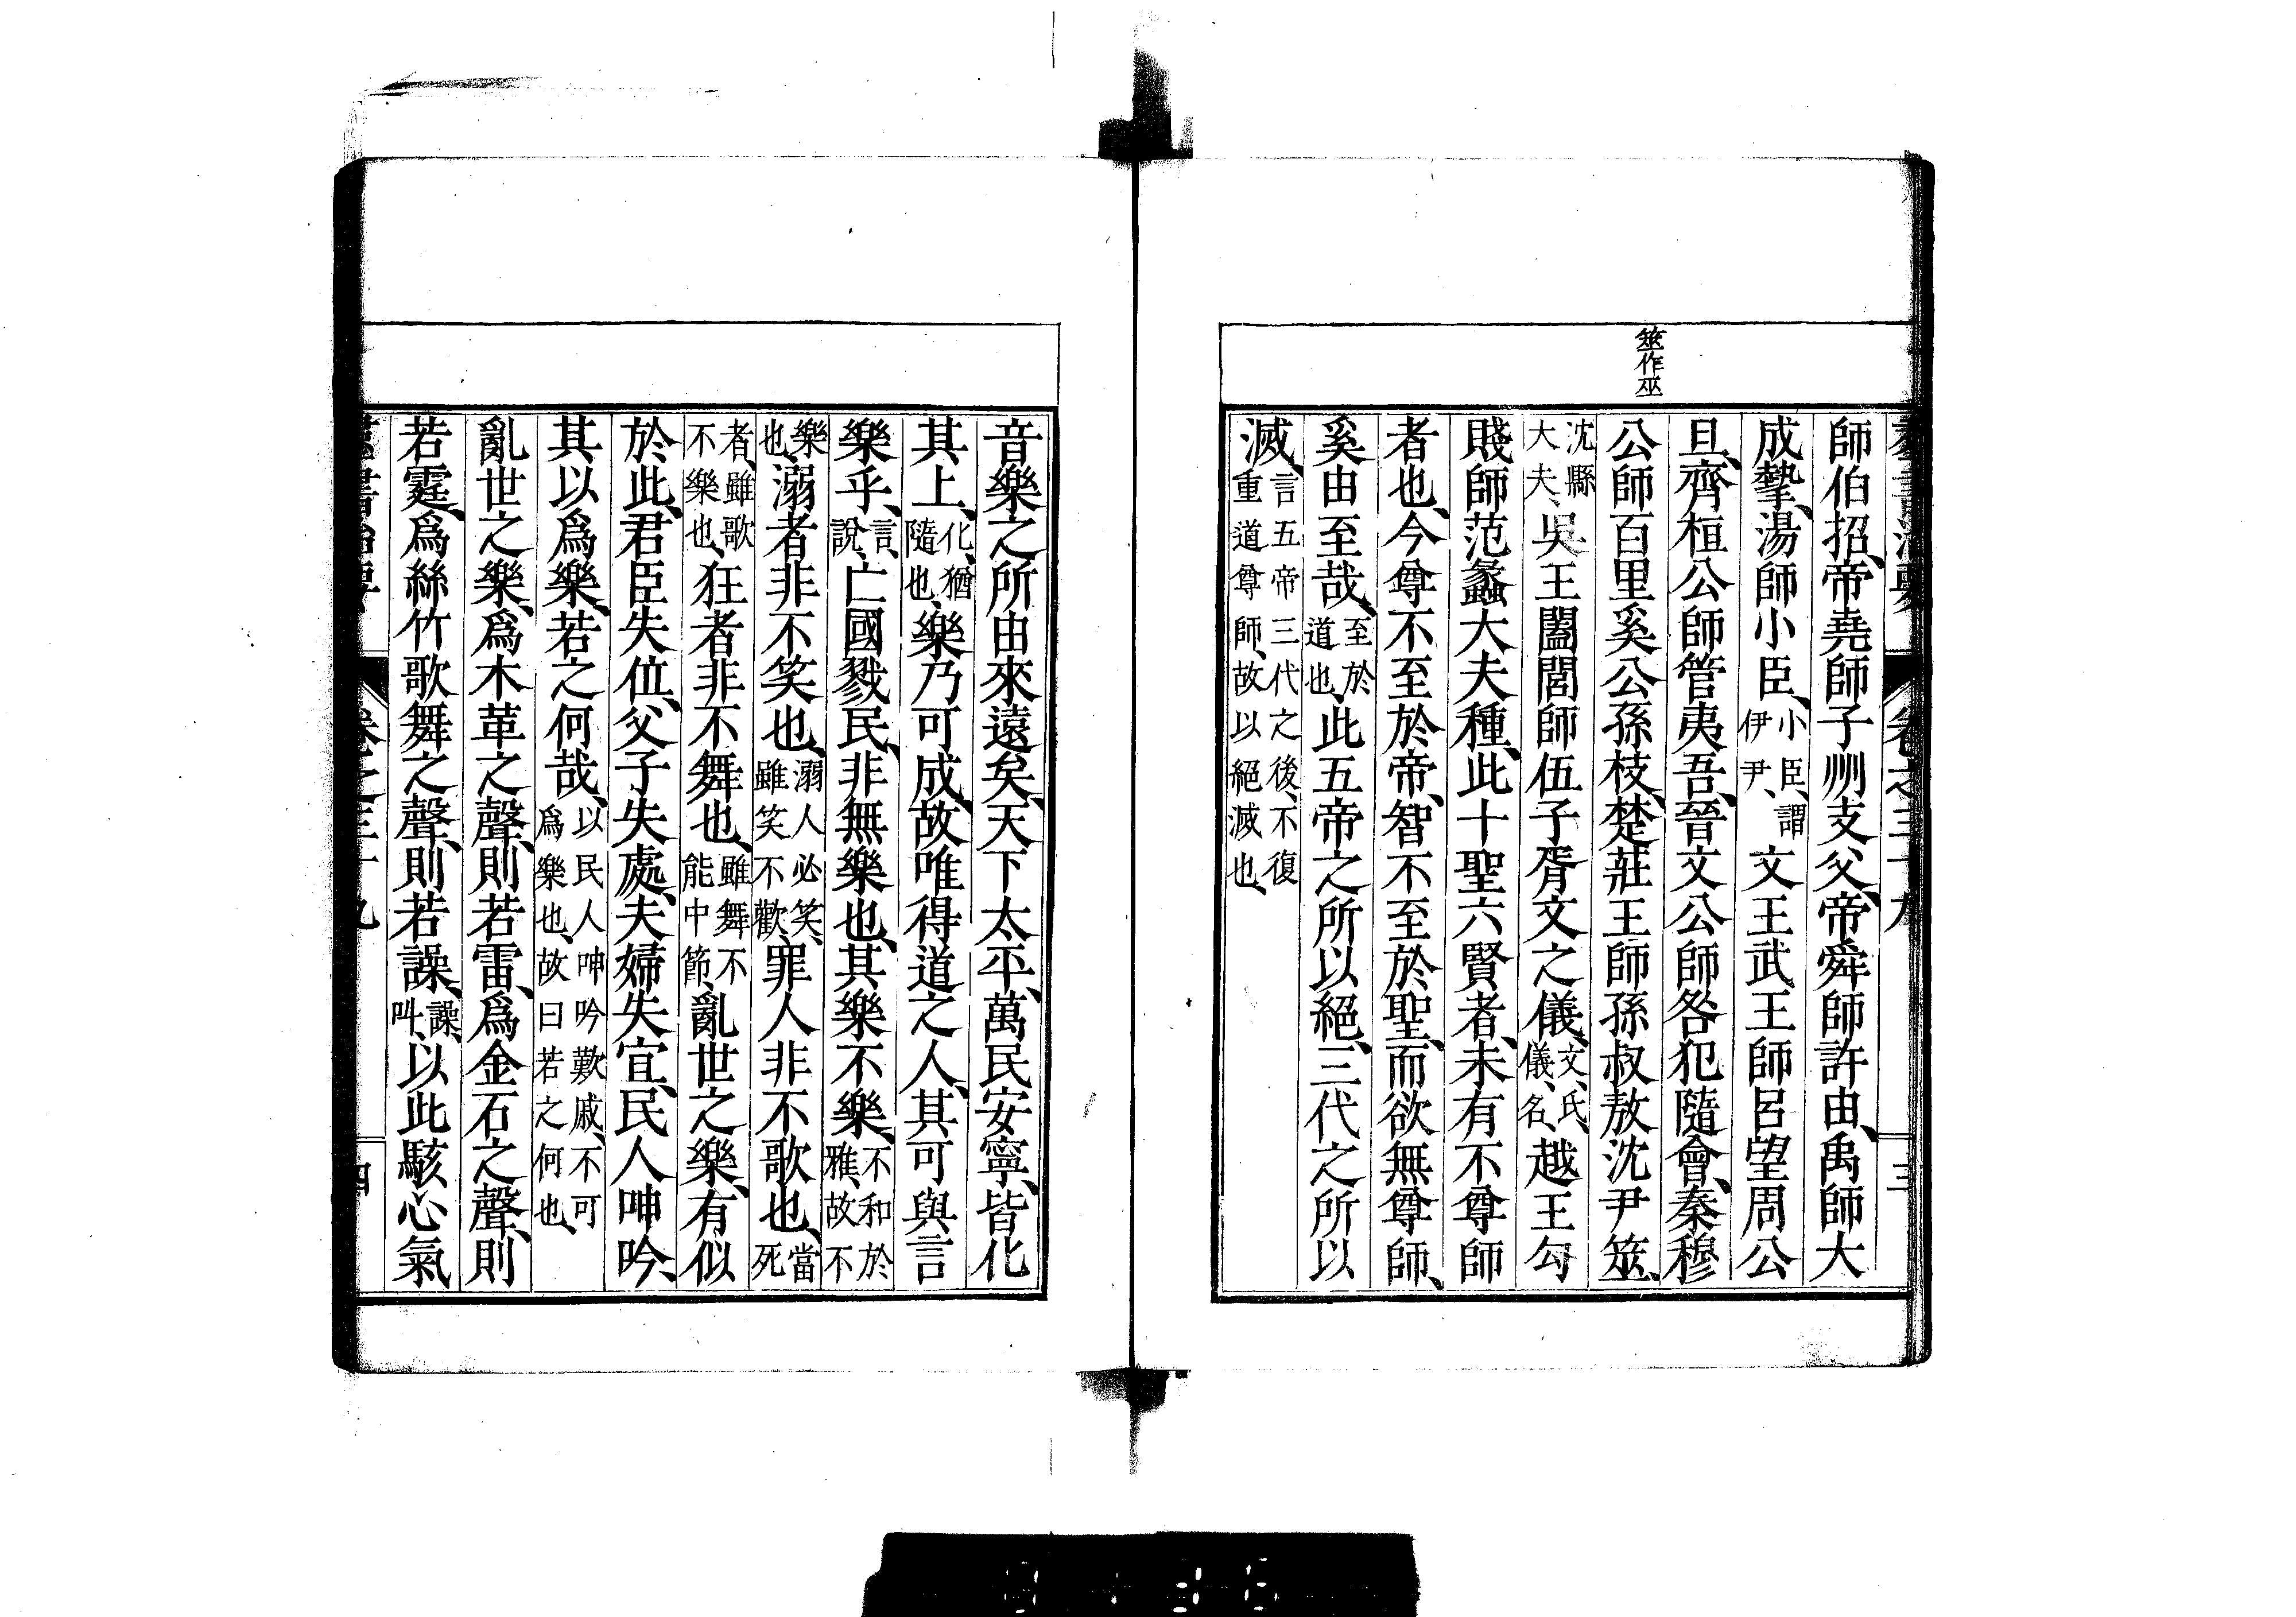 筮作巫
師伯招、帝堯師子州支父、帝舜師許由、禹師大
成摯、湯師小臣、小臣、謂伊尹、文王武王師呂望周公
旦、齊桓公師管夷吾、晉文公師咎犯隨會、秦穆
公師百里奚公孫枝、楚莊王師孫叔敖沈尹筮、
沈縣大夫、吳王闔閭師伍子胥文之儀、文、氏、儀、名、越王勾
賤師范蠡大夫種、此十聖六賢者、未有不尊師
者也、今尊不至於帝、智不至於聖、而欲無尊師、
奚由至哉、至於道也、此五帝之所以絕、三代之所以
滅、言五帝三代之後、不復重道尊師、故以絕滅也、
音樂之所由來遠矣、天下太平、萬民安寧、皆化
其上、化、猶隨也、樂乃可成、故唯得道之人、其可與言
樂乎、言、說、亡國戮民、非無樂也、其樂不樂、不和於雅、故不
樂也、溺者非不笑也、溺人必笑、雖笑不歡、罪人非不歌也、當死
者、雖歌不樂也、狂者非不舞也、雖舞不能中節、亂世之樂、有似
於此、君臣失位、父子失處、夫婦失宜、民人呻吟、
其以爲樂、若之何哉、以民人呻吟歎戚、不可爲樂也、故曰若之何也、
亂世之樂、爲木革之聲、則若雷、爲金石之聲、則
若霆、爲絲竹歌舞之聲、則若譟、譟、叫、以此駭心氣
卷之三十九
四